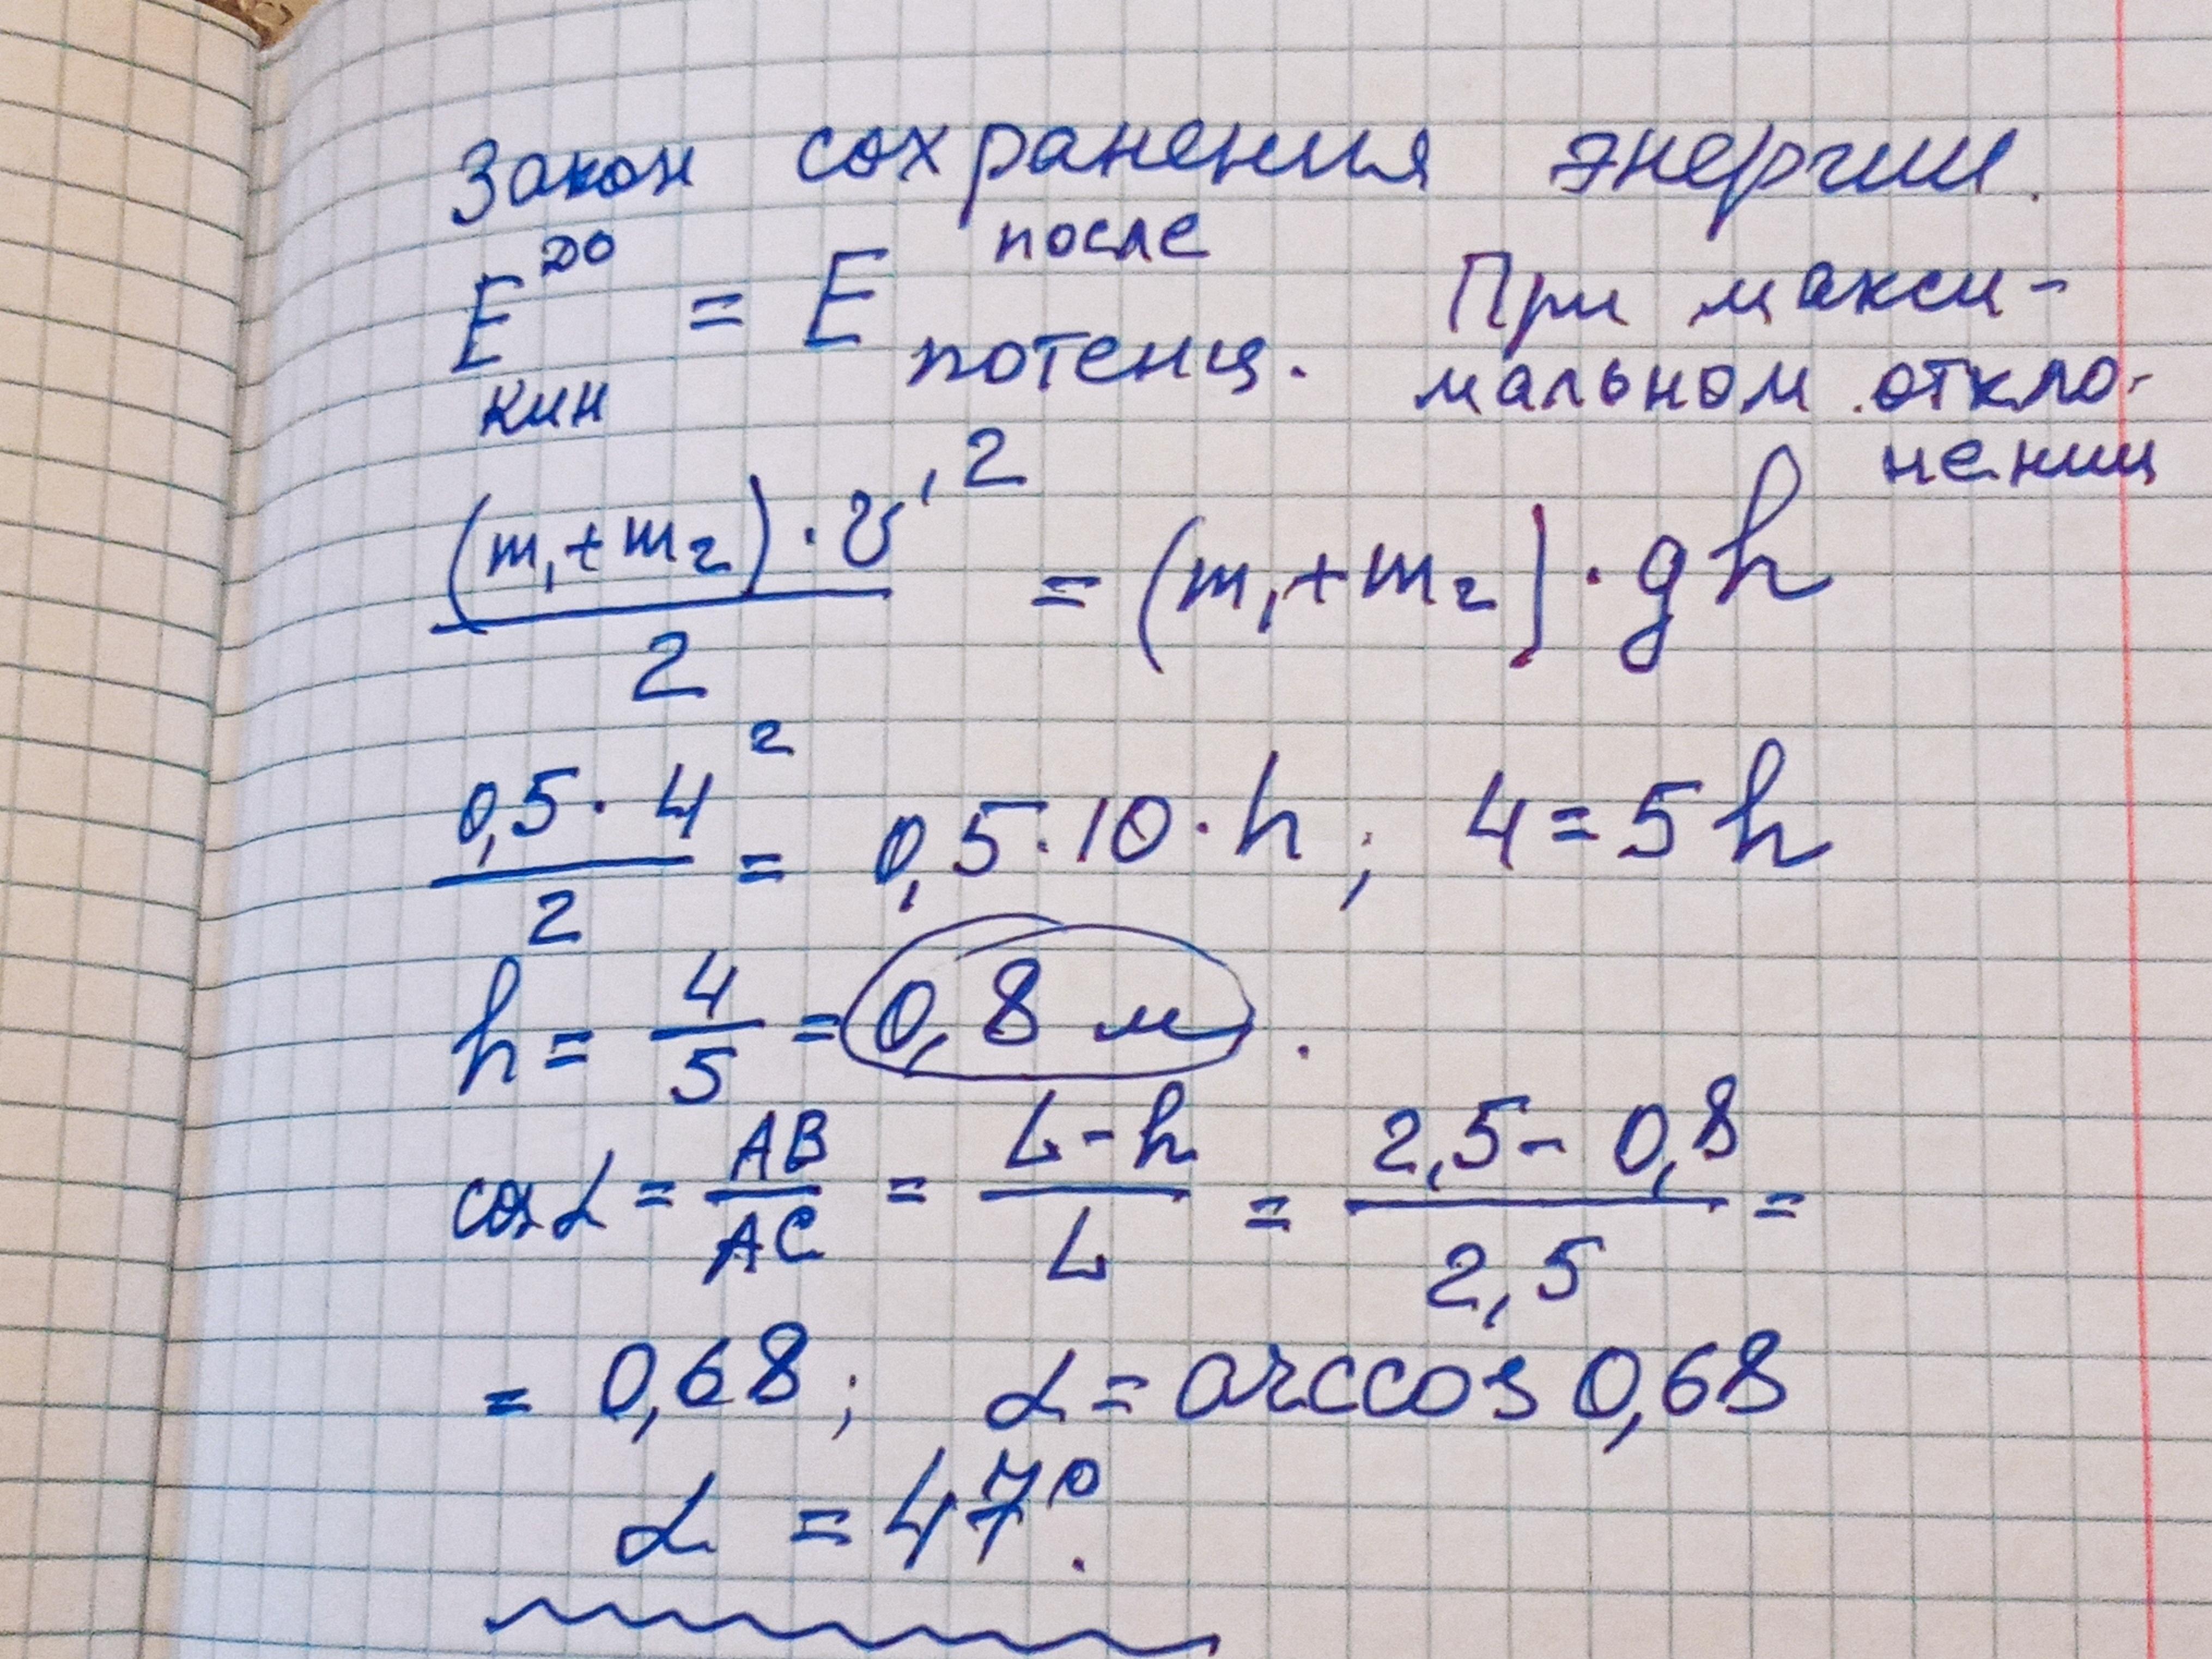 Закон сохранения энергии.
E до кин = E после потенц. При макси-
мальном откло-
нении
(m₁+m₂)·v'² / 2 = (m₁+m₂)·gh
0,5·4² / 2 = 0,5·10·h; 4=5h
h = 4/5 = 0,8 м.
cos α = AB/AC = L-h / L = 2,5-0,8 / 2,5 =
= 0,68; α = arccos 0,68
α = 47°.